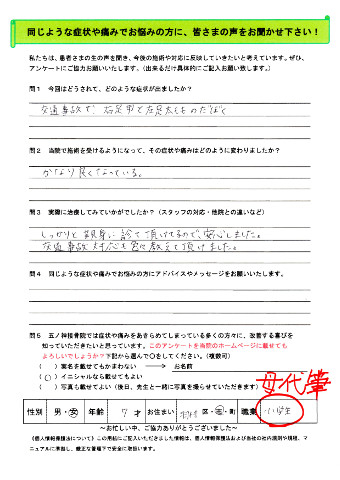 同じような症状や痛みでお悩みの方に、皆さまの声をお聞かせ下さい！
私たちは、患者さまの生の声を聞き、今後の施術や対応に反映していきたいと考えています。ぜひ、
アンケートにご協力お願いいたします。（出来るだけ具体的にご記入お願い致します。）
問1 今回はどうされて、どのような症状が出ましたか？
交通事故で、右足甲と左足太もものだぼく
問2 当院で施術を受けるようになって、その症状や痛みはどのように変わりましたか？
かなり良くなっている。
問3 実際に治療してみていかがでしたか？（スタッフの対応・他院との違いなど）
しっかりと親身に診て頂けるので、安心しました。
交通事故対応も教えて頂けました。
問4 同じような症状や痛みでお悩みの方にアドバイスやメッセージをお願いいたします。
問5 五ノ神接骨院では症状や痛みをあきらめてしまっている多くの方々に、改善する喜びを
知っていただきたいと思っています。このアンケートを当院のホームページに載せても
よろしいでしょうか？下記から選んで○をしてください。（複数可）
（ ）実名を載せてもかまわない → お名前
（○）イニシャルなら載せてもよい
（ ）写真も載せてよい（後日、先生と一緒に写真を撮らせていただきます）
母代筆
性別 男・女 年齢 7才 お住まい 羽村 区・市・町 職業 小学生
～お忙しい中、ご協力ありがとうございました～
《個人情報保護法について》この用紙にご記入いただきました情報は、個人情報保護法および当社の社内規則や規程、マ
ニュアルに準拠し、厳正な管理下で安全に取扱います。